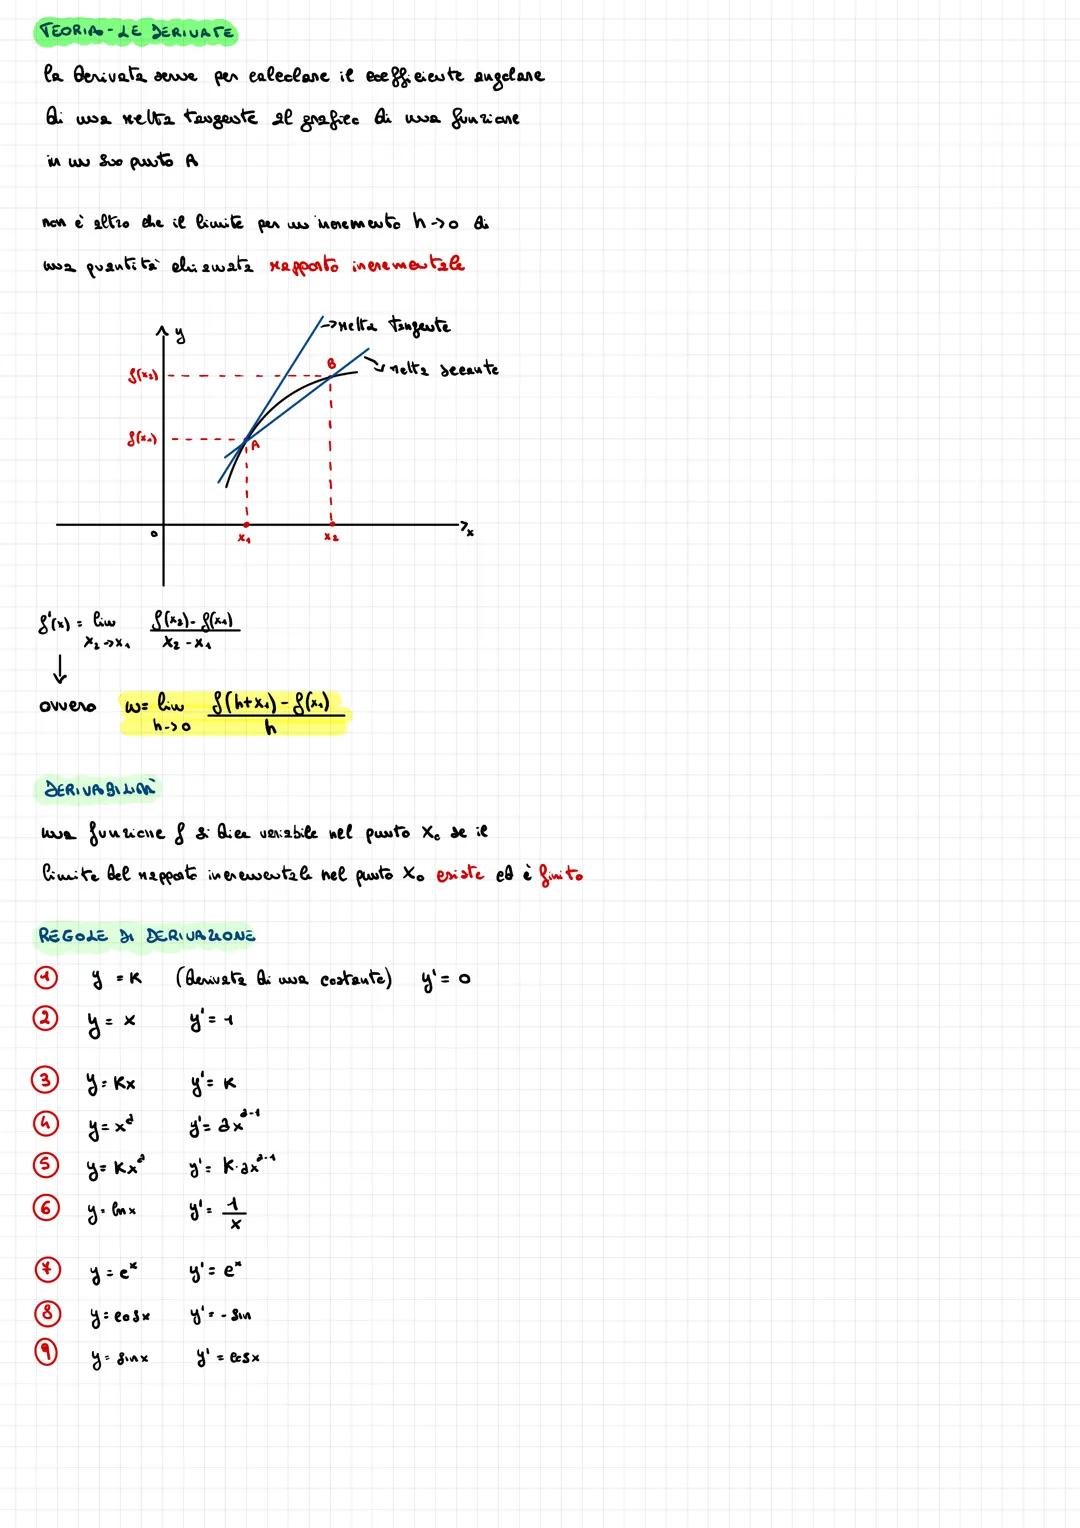 TEORIA - LE DERIVATE
la derivata serve per calcolare il coefficiente angolare
di una retta tangente al grafico di una funzione
in un suo punto A
non è altro che il limite per un incremento h->0 di
una quantità chiamata rapporto incrementale
y
->retta tangente
B
retta secante
f(x₂)
f(x₁)
A
0
x₁
x₂
x
f'(x) = lim f(x₂) - f(x₁)
x₂->x₁ x₂ - x₁
ovvero m= lim f(h+x₁) - f(x₁)
h->0 h
DERIVABILITÀ
una funzione f si dice variabile nel punto x₀ se il
limite del rapporto incrementale nel punto x₀ esiste ed è finito
REGOLE DI DERIVAZIONE
1 y = K (derivata di una costante) y' = 0
2 y = x y' = 1
3 y = Kx y' = K
4 y = xᵃ y' = axᵃ⁻¹
5 y = Kxᵃ y' = K·axᵃ⁻¹
6 y = ln x y' = 1/x
7 y = eˣ y' = eˣ
8 y = cosx y' = - sin
9 y = sinx y' = cosx